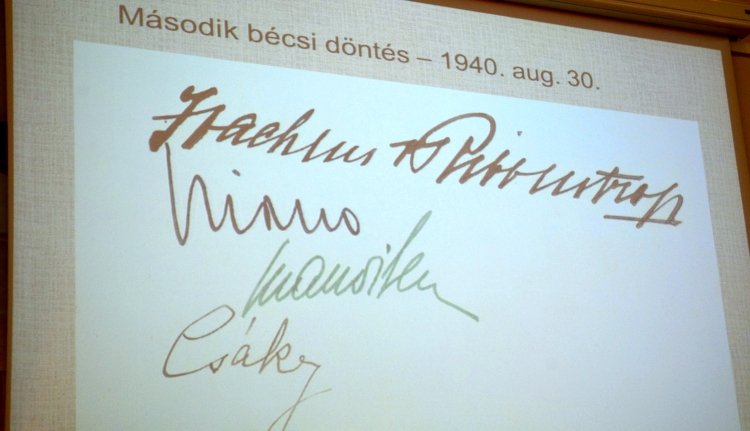 Második bécsi döntés – 1940. aug. 30.
Joachim v Ribbentrop
Ciano
Manoilescu
Csáky